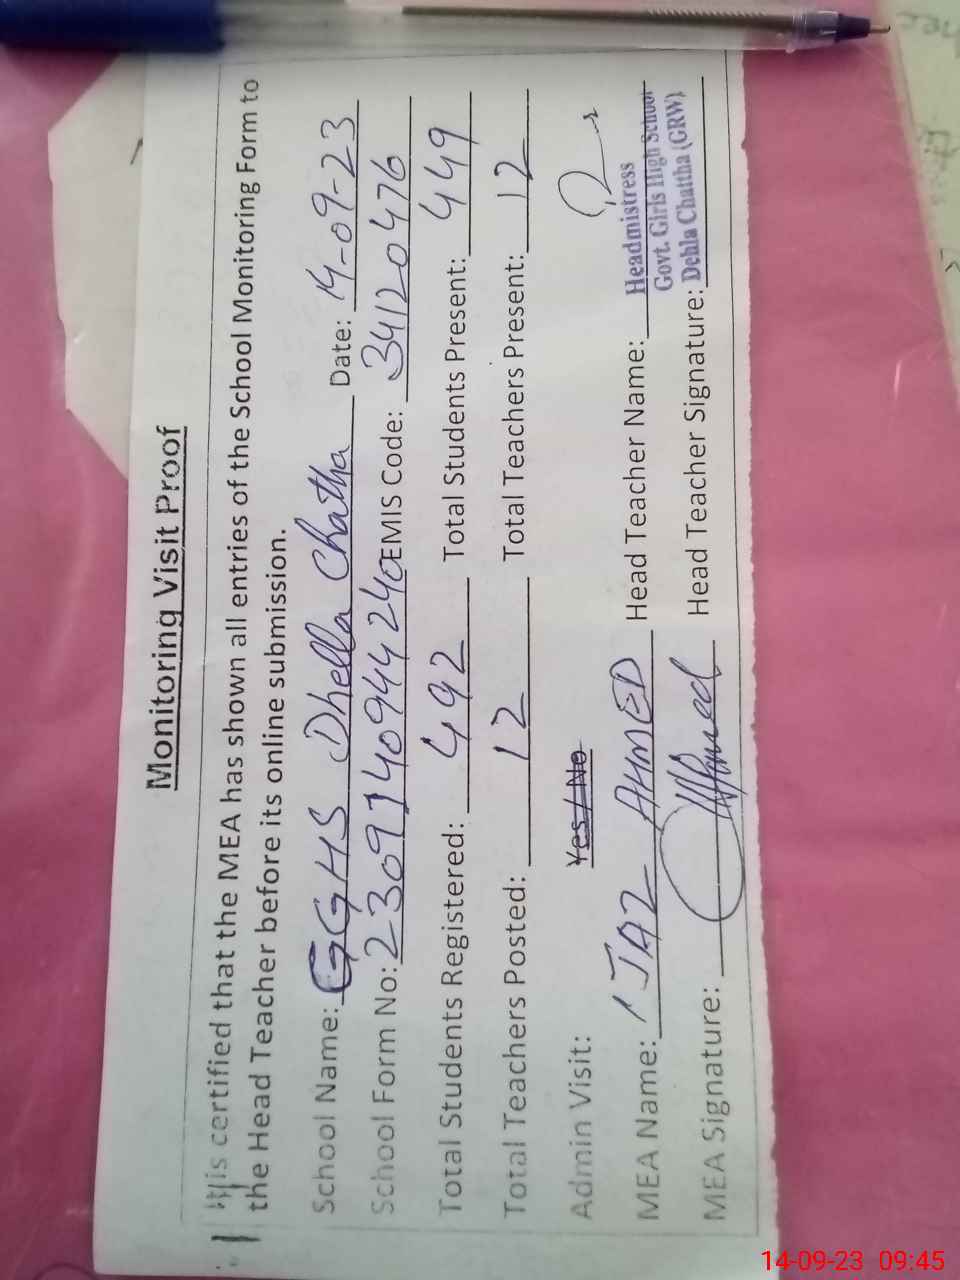 Monitoring Visit Proof
It is certified that the MEA has shown all entries of the School Monitoring Form to
the Head Teacher before its online submission.
School Name: GGHS Dhella Chatha Date: 14-09-23
School Form No: 2309140944240 EMIS Code: 34120476
Total Students Registered: 492 Total Students Present: 449
Total Teachers Posted: 12 Total Teachers Present: 12
Admin Visit: Yes / No
MEA Name: IJAZ AHMED Head Teacher Name: Headmistress
Govt. Girls High School
MEA Signature: Head Teacher Signature: Dehla Chattha (GRW)
14-09-23 09:45